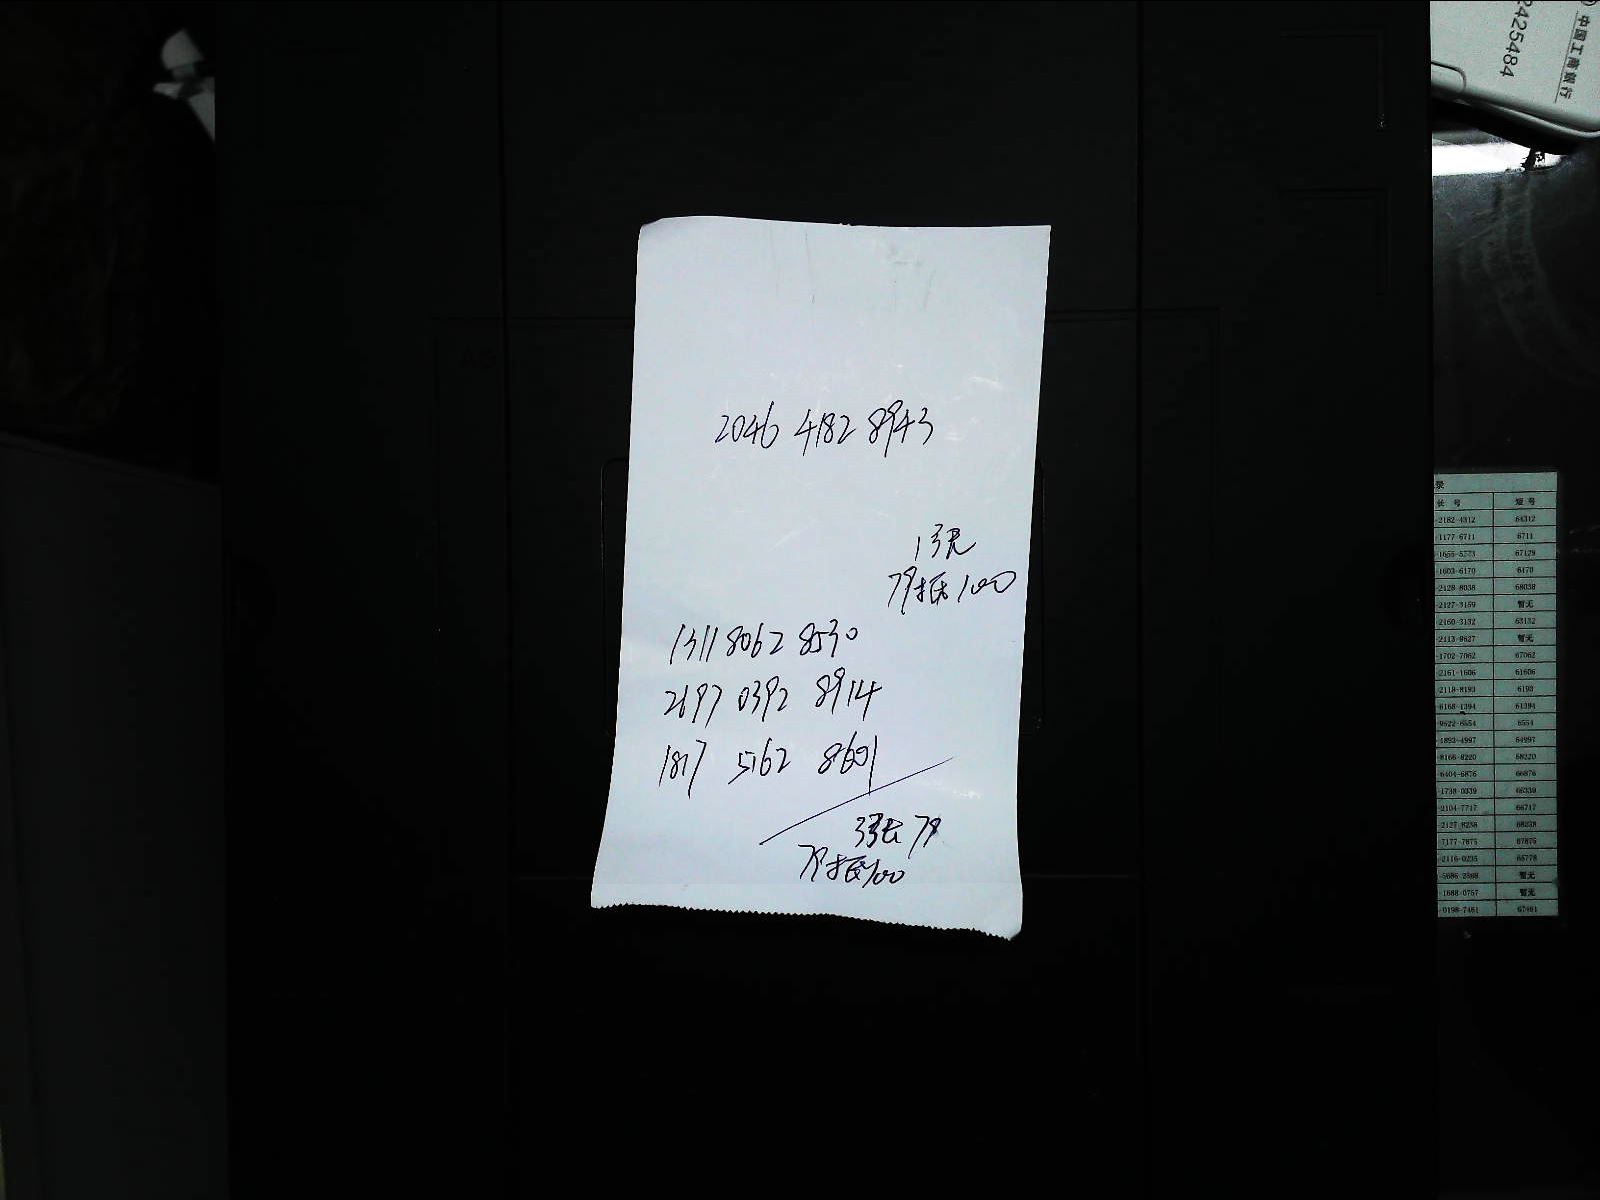 2425484
中国工商银行
2046 4182 8943
1张
79抵100
1311 8062 8530
2697 0392 8914
1817 5162 8601
3张 79
79抵100
长 号 短 号
-2182-4312 64312
-1177-6711 6711
-1655-5273 67129
-1603-6170 6170
-2128-8038 68038
-2127-3159 暂无
-2160-3132 63132
-2113-9627 暂无
-1702-7062 67062
-2161-1606 61606
-2118-8193 6193
-6168-1394 61394
-9522-6554 6554
-1893-4997 64997
-8166-8220 68220
-6404-6876 66876
-1738-0339 66339
-2104-7717 66717
-2127-8238 68238
7177-7875 67875
-2116-0235 65778
-5686-2588 暂无
-1688-0757 暂无
-0198-7461 67461